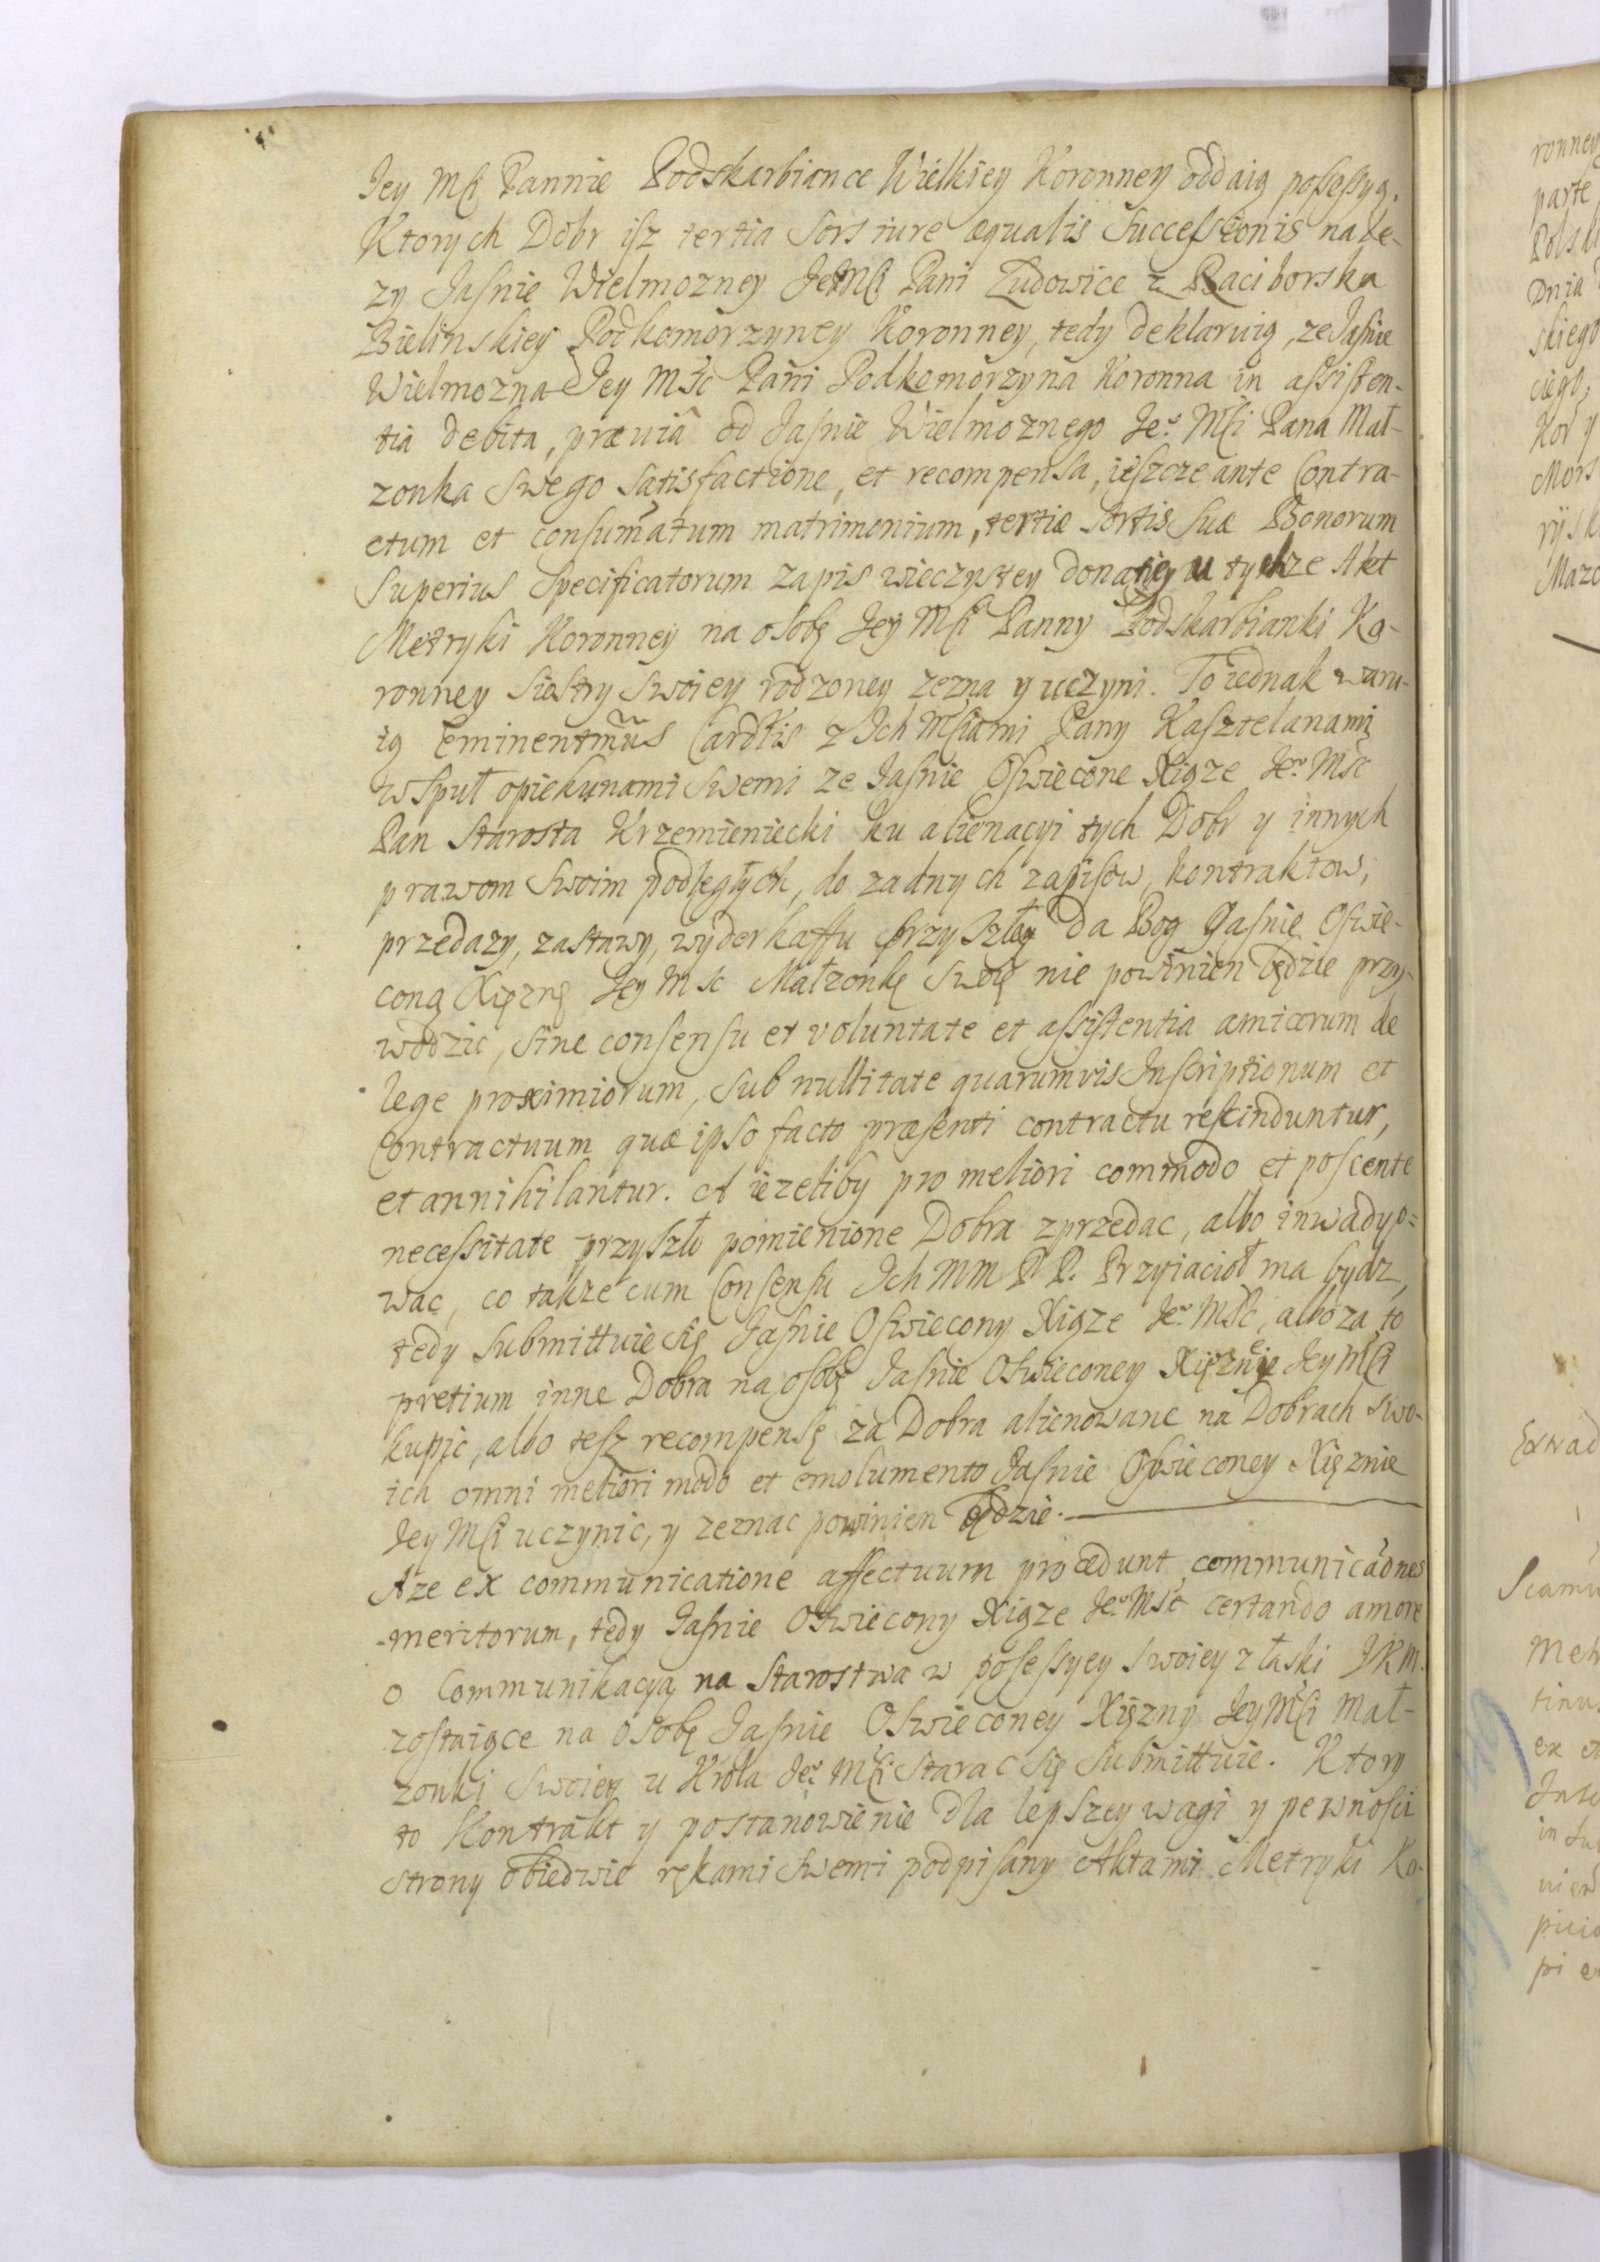 Jey Mści Pannie Podskarbiance Wielkiey Koronney oddaią possessyą.
Ktorych Dobr isz tertia sors iure æqualis Successionis nale-
zy Jasnie Wielmozney JeMści Pani Ludowice z Raciborska
Bielinskiey Podkomorzyney Koronney, tedy deklaruią, ze Jasnie
Wielmozna Jey Mśc Pani Podkomorzyna Koronna in assisten-
tia debita, præviâ od Jasnie Wielmoznego Jeº Mści Pana Mał-
zonka swego satisfactione, et recompensa, ieszcze ante Contra-
ctum et consum̃atum matrimonium, tertiæ sortis suæ Bonorum
Superius Specificatorum zapis wieczystey donatiey u tychze Akt
Metryki Koronney na osobę Jey Mści Panny Podskarbianki Ko-
ronney siestry swoiey rodzoney zezna y uczyni. To iednak waru-
ią Eminentm̃us Cardlis z Ich Mściami Pany Kasztelanami
wspuł opiekunami swemi ze Jasnie Oswiecone Xiąze Jeº Mśc
Pan Starosta Krzemieniecki ku alienacyi tych Dobr y innych
prawom swoim podległych, do zadnych zapisow, kontraktow,
przedazy, zastawy, wyderkaffu przyszłą da Bog Jasnie Oswie-
coną Xięznę Jey Msc Małzonkę swoię nie powinien będzie przy-
wodzic, sine consensu et voluntate et assistentia amicorum de
lege proximiorum, sub nullitate quarumvis Inscriptionum et
Contractuum quæ ipso facto præsenti contractu rescinduntur,
et annihilantur. A iezeliby pro meliori commodo et poscente
necessitate przyszło pomienione Dobra zprzedac, albo inwadyo=
wac, co takze cum Consensu Ich MM PP. Przyiacioł ma bydz,
tedy submittuie się Jasnie Oswiecony Xiąze Jeº Mśc, albo za to
pretium inne Dobra na osobę Jasnie Oswieconey Xięznie Jey Mści
kupic, albo tesz recompensę za Dobra alienowane na Dobrach swo-
ich omni meliori modo et emolumento Jasnie Oswieconey Xięznie
Jey Mści uczynic, y zeznac powinien będzie.
A ze ex communicatione affectuum procedunt communicãones
meritorum, tedy Jasnie Oswiecony Xiąze Jeº Mśc certando amore
o Communikacyą na Starostwa w possessyey swoiey z łaski JKM.
zostaiące na osobę Jasnie Oswieconey Xięzny Jey Mści Mał-
zonki swoiey u Krola Jeº Mści starac się submittuie. Ktory
to Kontrakt y postanowienie dla lepszey wagi y pewnosci
strony obiedwie rękami swemi podpisany Aktami Metryki Ko-